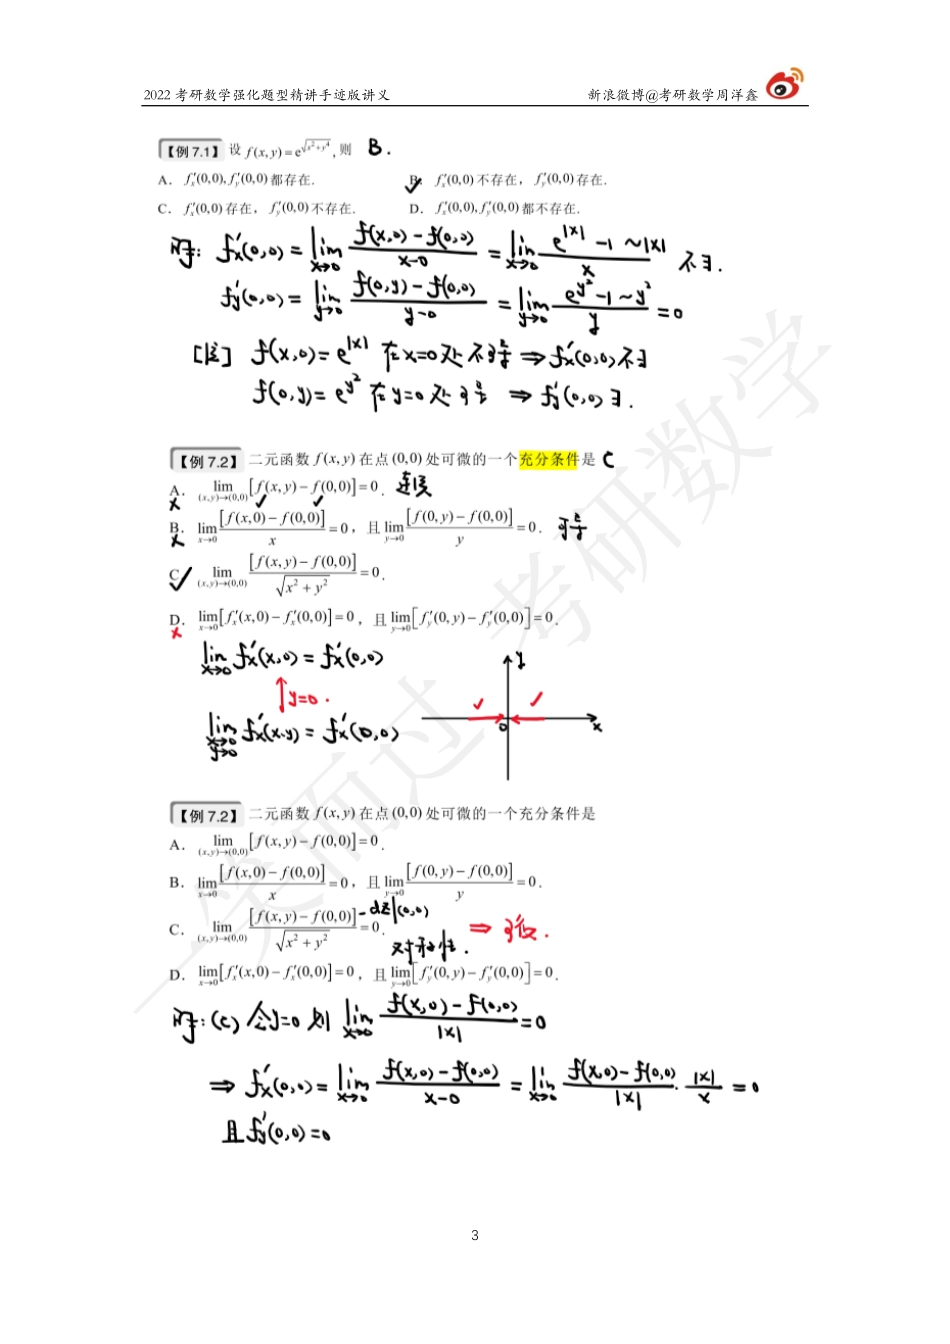 2022 考研数学强化题型精讲手迹版讲义 新浪微博@考研数学周洋鑫
【例 7.1】 设 f(x,y)=e^{√(x²+y⁴)}, 则 B.
A. f′ₓ(0,0), f′ᵧ(0,0)都存在. B. f′ₓ(0,0)不存在, f′ᵧ(0,0)存在.
C. f′ₓ(0,0)存在, f′ᵧ(0,0)不存在. D. f′ₓ(0,0), f′ᵧ(0,0)都不存在.
解: f′ₓ(0,0) = lim_{x→0} (f(x,0)-f(0,0))/(x-0) = lim_{x→0} (e^{|x|}-1 ~|x|)/x 不∃.
f′ᵧ(0,0) = lim_{y→0} (f(0,y)-f(0,0))/(y-0) = lim_{y→0} (e^{y²}-1 ~ y²)/y = 0
[注] f(x,0)=e^{|x|} 在x=0处不可导 ⇒ f′ₓ(0,0)不∃
f(0,y)=e^{y²} 在y=0处可导 ⇒ f′ᵧ(0,0)∃.
【例 7.2】 二元函数 f(x,y) 在点 (0,0) 处可微的一个充分条件是 C
A. lim_{(x,y)→(0,0)} [f(x,y)-f(0,0)]=0. 连续
B. lim_{x→0} [f(x,0)-f(0,0)]/x =0, 且 lim_{y→0} [f(0,y)-f(0,0)]/y =0. 可导
C. lim_{(x,y)→(0,0)} [f(x,y)-f(0,0)]/√(x²+y²) =0.
D. lim_{x→0} [f′ₓ(x,0)-f′ₓ(0,0)]=0, 且 lim_{y→0} [f′ᵧ(0,y)-f′ᵧ(0,0)]=0.
lim_{x→0} f′ₓ(x,0) = f′ₓ(0,0)
y=0.
lim_{x→0 y→0} f′ₓ(x,y) = f′ₓ(0,0)
y
0 x
【例 7.2】 二元函数 f(x,y) 在点 (0,0) 处可微的一个充分条件是
A. lim_{(x,y)→(0,0)} [f(x,y)-f(0,0)]=0.
B. lim_{x→0} [f(x,0)-f(0,0)]/x =0, 且 lim_{y→0} [f(0,y)-f(0,0)]/y =0.
C. lim_{(x,y)→(0,0)} [f(x,y)-f(0,0)]-dz|(0,0) /√(x²+y²) =0. ⇒ 可微.
D. lim_{x→0} [f′ₓ(x,0)-f′ₓ(0,0)]=0, 且 lim_{y→0} [f′ᵧ(0,y)-f′ᵧ(0,0)]=0.
解: (C) 令y=0 则 lim_{x→0} (f(x,0)-f(0,0))/|x| =0
⇒ f′ₓ(0,0) = lim_{x→0} (f(x,0)-f(0,0))/(x-0) = lim_{x→0} (f(x,0)-f(0,0))/|x| · |x|/x = 0
且 f′ᵧ(0,0)=0
3
一笑而过 考研数学